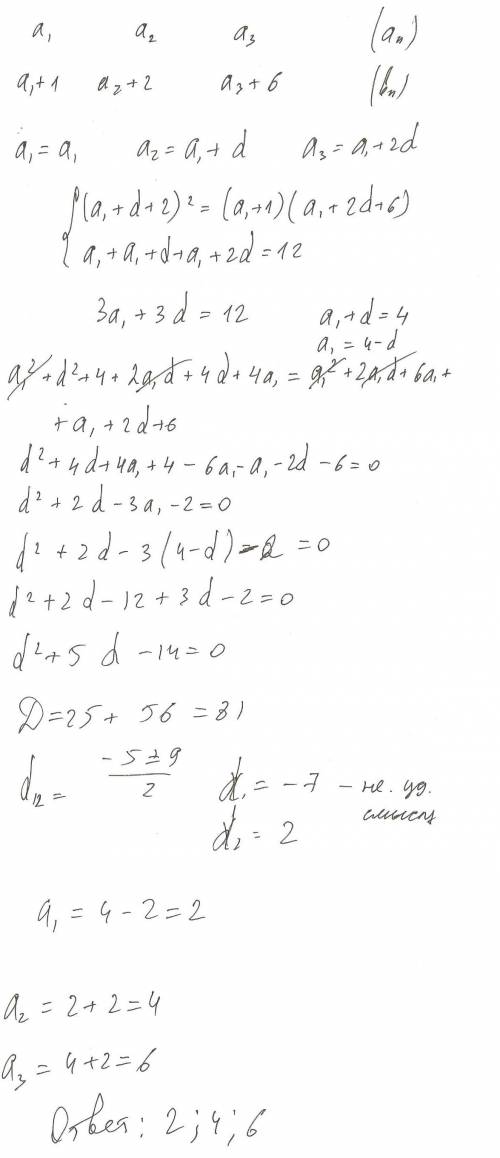 a₁ a₂ a₃ (aₙ)
a₁+1 a₂+2 a₃+6 (bₙ)
a₁ = a₁ a₂ = a₁ + d a₃ = a₁ + 2d
{(a₁+d+2)² = (a₁+1)(a₁+2d+6)
a₁ + a₁ + d + a₁ + 2d = 12
3a₁ + 3d = 12 a₁ + d = 4
a₁ = 4-d
a₁² + d² + 4 + 2a₁d + 4d + 4a₁ = a₁² + 2a₁d + 6a₁ +
+ a₁ + 2d + 6
d² + 4d + 4a₁ + 4 - 6a₁ - a₁ - 2d - 6 = 0
d² + 2d - 3a₁ - 2 = 0
d² + 2d - 3(4-d) - 2 = 0
d² + 2d - 12 + 3d - 2 = 0
d² + 5d - 14 = 0
D = 25 + 56 = 81
d₁₂ = (-5 ± 9)/2 d₁ = -7 - не. уд.
смыслу
d₂ = 2
a₁ = 4 - 2 = 2
a₂ = 2 + 2 = 4
a₃ = 4 + 2 = 6
Ответ: 2; 4; 6